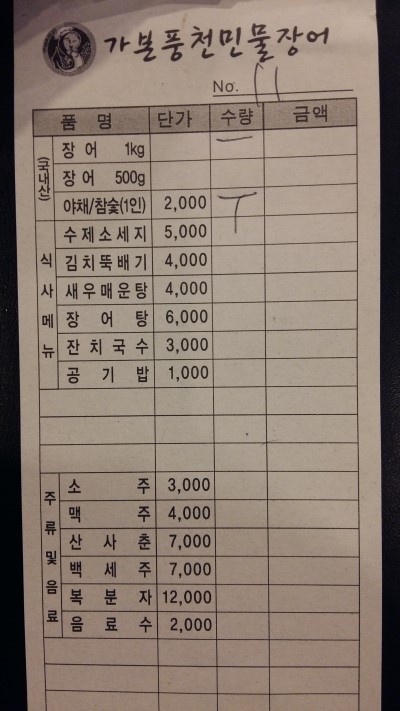 가본풍천민물장어
No. 11
품 명 단가 수량 금액
(국내산)
장 어 1kg 一
장 어 500g
야채/참숯(1인) 2,000 T
식사메뉴
수제소세지 5,000
김치뚝배기 4,000
새우매운탕 4,000
장 어 탕 6,000
잔치국수 3,000
공 기 밥 1,000
주류 및 음료
소 주 3,000
맥 주 4,000
산 사 춘 7,000
백 세 주 7,000
복 분 자 12,000
음 료 수 2,000